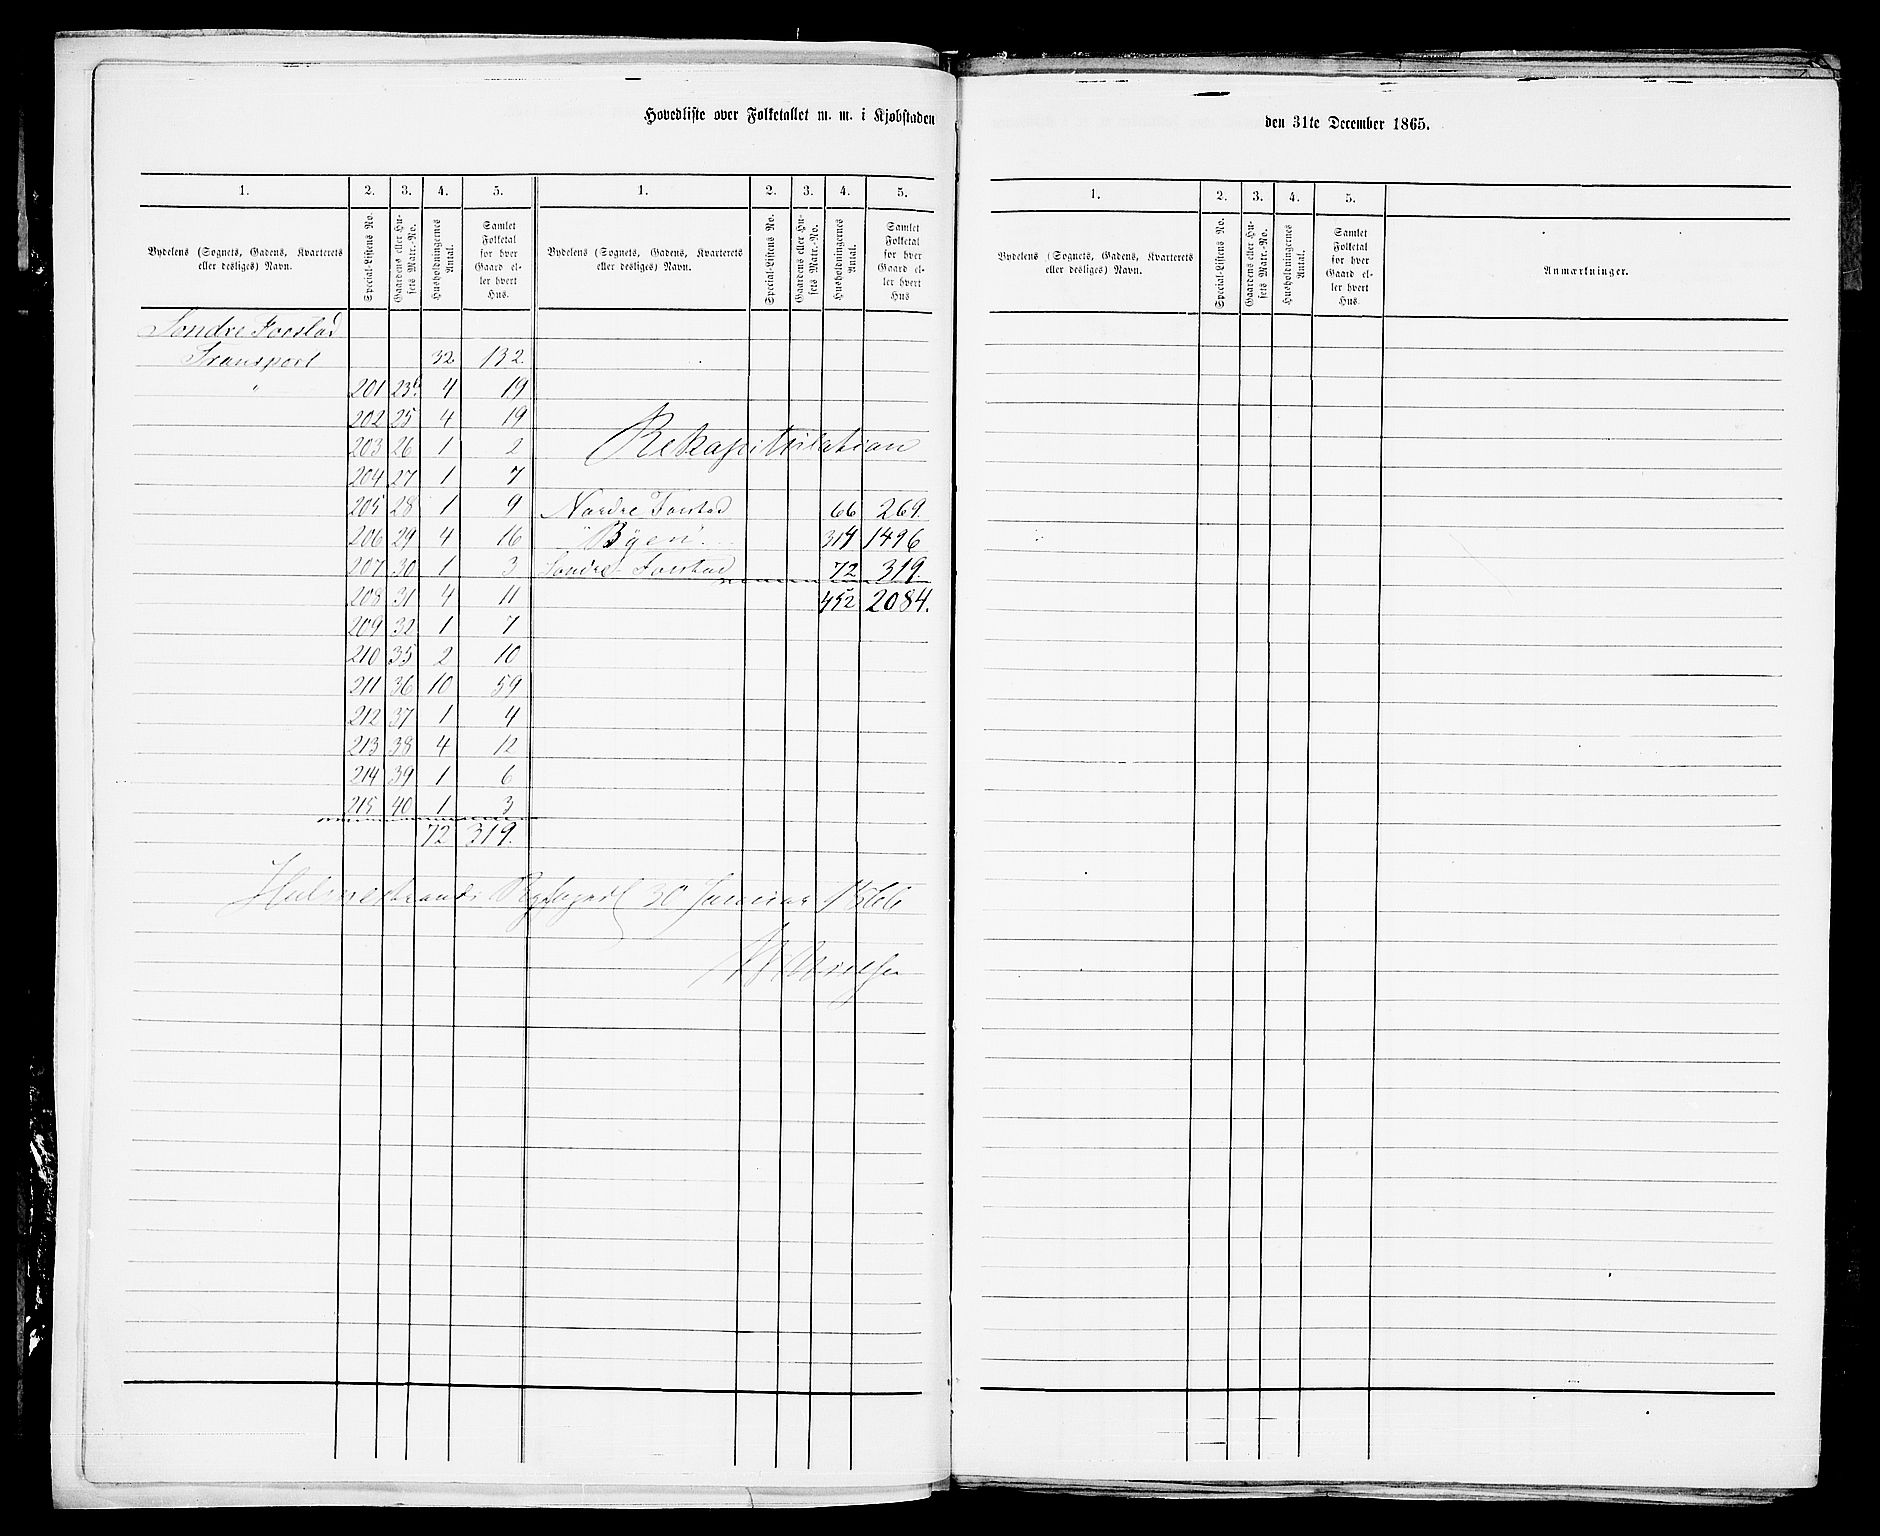 Hovedliste over Folketallet m. m. i Kjøbstaden den 31te December 1865.
1. 2. 3. 4. 5. 1. 2. 3. 4. 5. 1. 2. 3. 4. 5.
Bydelens (Sognets, Gadens, Kvarterets eller desliges) Navn.
Special-Listens No.
Gaardens eller Husets Matr.-No.
Husholdningernes Antal.
Samlet Folketal for hver Gaard eller hvert Hus.
Bydelens (Sognets, Gadens, Kvarterets eller desliges) Navn.
Special-Listens No.
Gaardens eller Husets Matr.-No.
Husholdningernes Antal.
Samlet Folketal for hver Gaard eller hvert Hus
Bydelens (Sognets, Gadens, Kvarterets eller desliges) Navn.
Special-Listens No.
Gaardens eller Husets Matr.-No.
Husholdningernes Antal.
Samlet Folketal for hver Gaard eller hvert Hus.
Anmærkninger.
Søndre Forstad
Transport 32 132.
" 201 23b 4 19
202 25 4 19
203 26 1 2
204 27 1 7
205 28 1 9
206 29 4 16
207 30 1 3
208 31 4 11
209 32 1 7
210 35 2 10
211 36 10 59
212 37 1 4
213 38 4 12
214 39 1 6
215 40 1 3
72 319.
Rekapitulation
Nordre Forstad 66 269.
"Byen" 314 1496
Søndre Forstad 72 319.
452 2084.
Holmestrands 30 Januar 1866